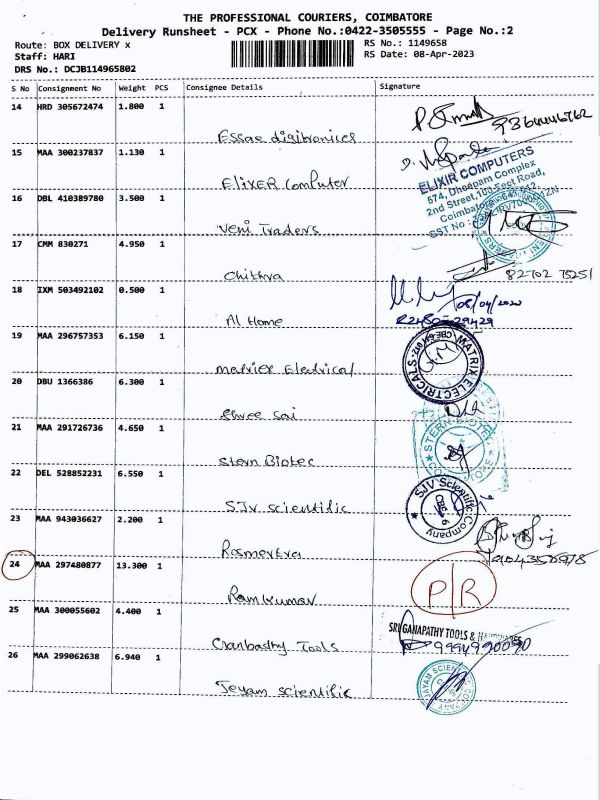 THE PROFESSIONAL COURIERS, COIMBATORE
Delivery Runsheet - PCX - Phone No.:0422-3505555 - Page No.:2
Route: BOX DELIVERY x
RS No.: 1149658
Staff: HARI
RS Date: 08-Apr-2023
DRS No.: DCJB114965802
S No Consignment No Weight PCS Consignee Details Signature
14 HRD 305672474 1.800 1
Essae digitronics
15 MAA 300237837 1.130 1
ELIXIR COMPUTERS
574, Dheepam Complex
2nd Street, 100 Feet Road,
Elixer Computer
16 DBL 410389780 3.500 1
Veni Traders
17 CMM 830271 4.950 1
82702 75251
Chithra
18 IXM 503492102 0.500 1
Al Home
19 MAA 296757353 6.150 1
MATRIX ELECTRICALS
matrix Electrical
20 DBU 1366386 6.300 1
Shree Sai
21 MAA 291726736 4.650 1
Stern Biotec
22 DEL 528852231 6.550 1
SJV Scientific Company
SJV scientific
23 MAA 943036627 2.200 1
24 MAA 297480877 13.300 1
P/R
Ram Kumar
25 MAA 300055602 4.400 1
SRI GANAPATHY TOOLS &
9994990090
26 MAA 299062638 6.940 1
Jeyam scientific